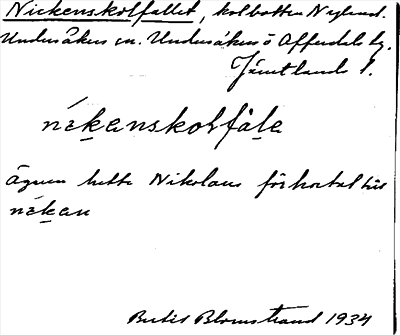 Nickenskolfallet, kolbotten Nyland.
Undersåkers sn. Undersåkers o Offerdals tg.
Jämtlands l.
nékenskolfàle
Ägaren hette Nikolaus förkortat till
néken
Bertil Blomstrand 1934